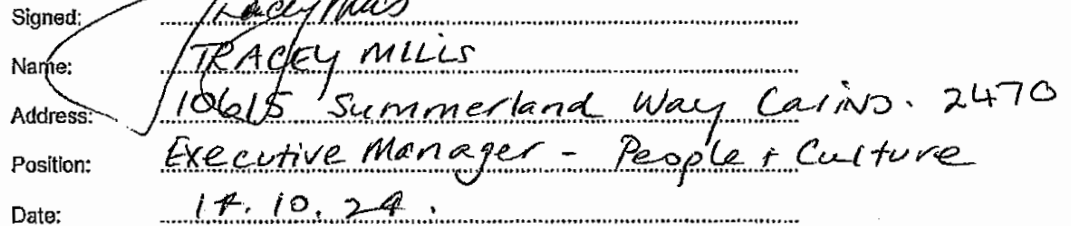 Signed: Tracey Mills
Name: TRACEY MILLS
Address: 10615 Summerland Way Casino. 2470
Position: Executive Manager - People + Culture
Date: 14.10.24.